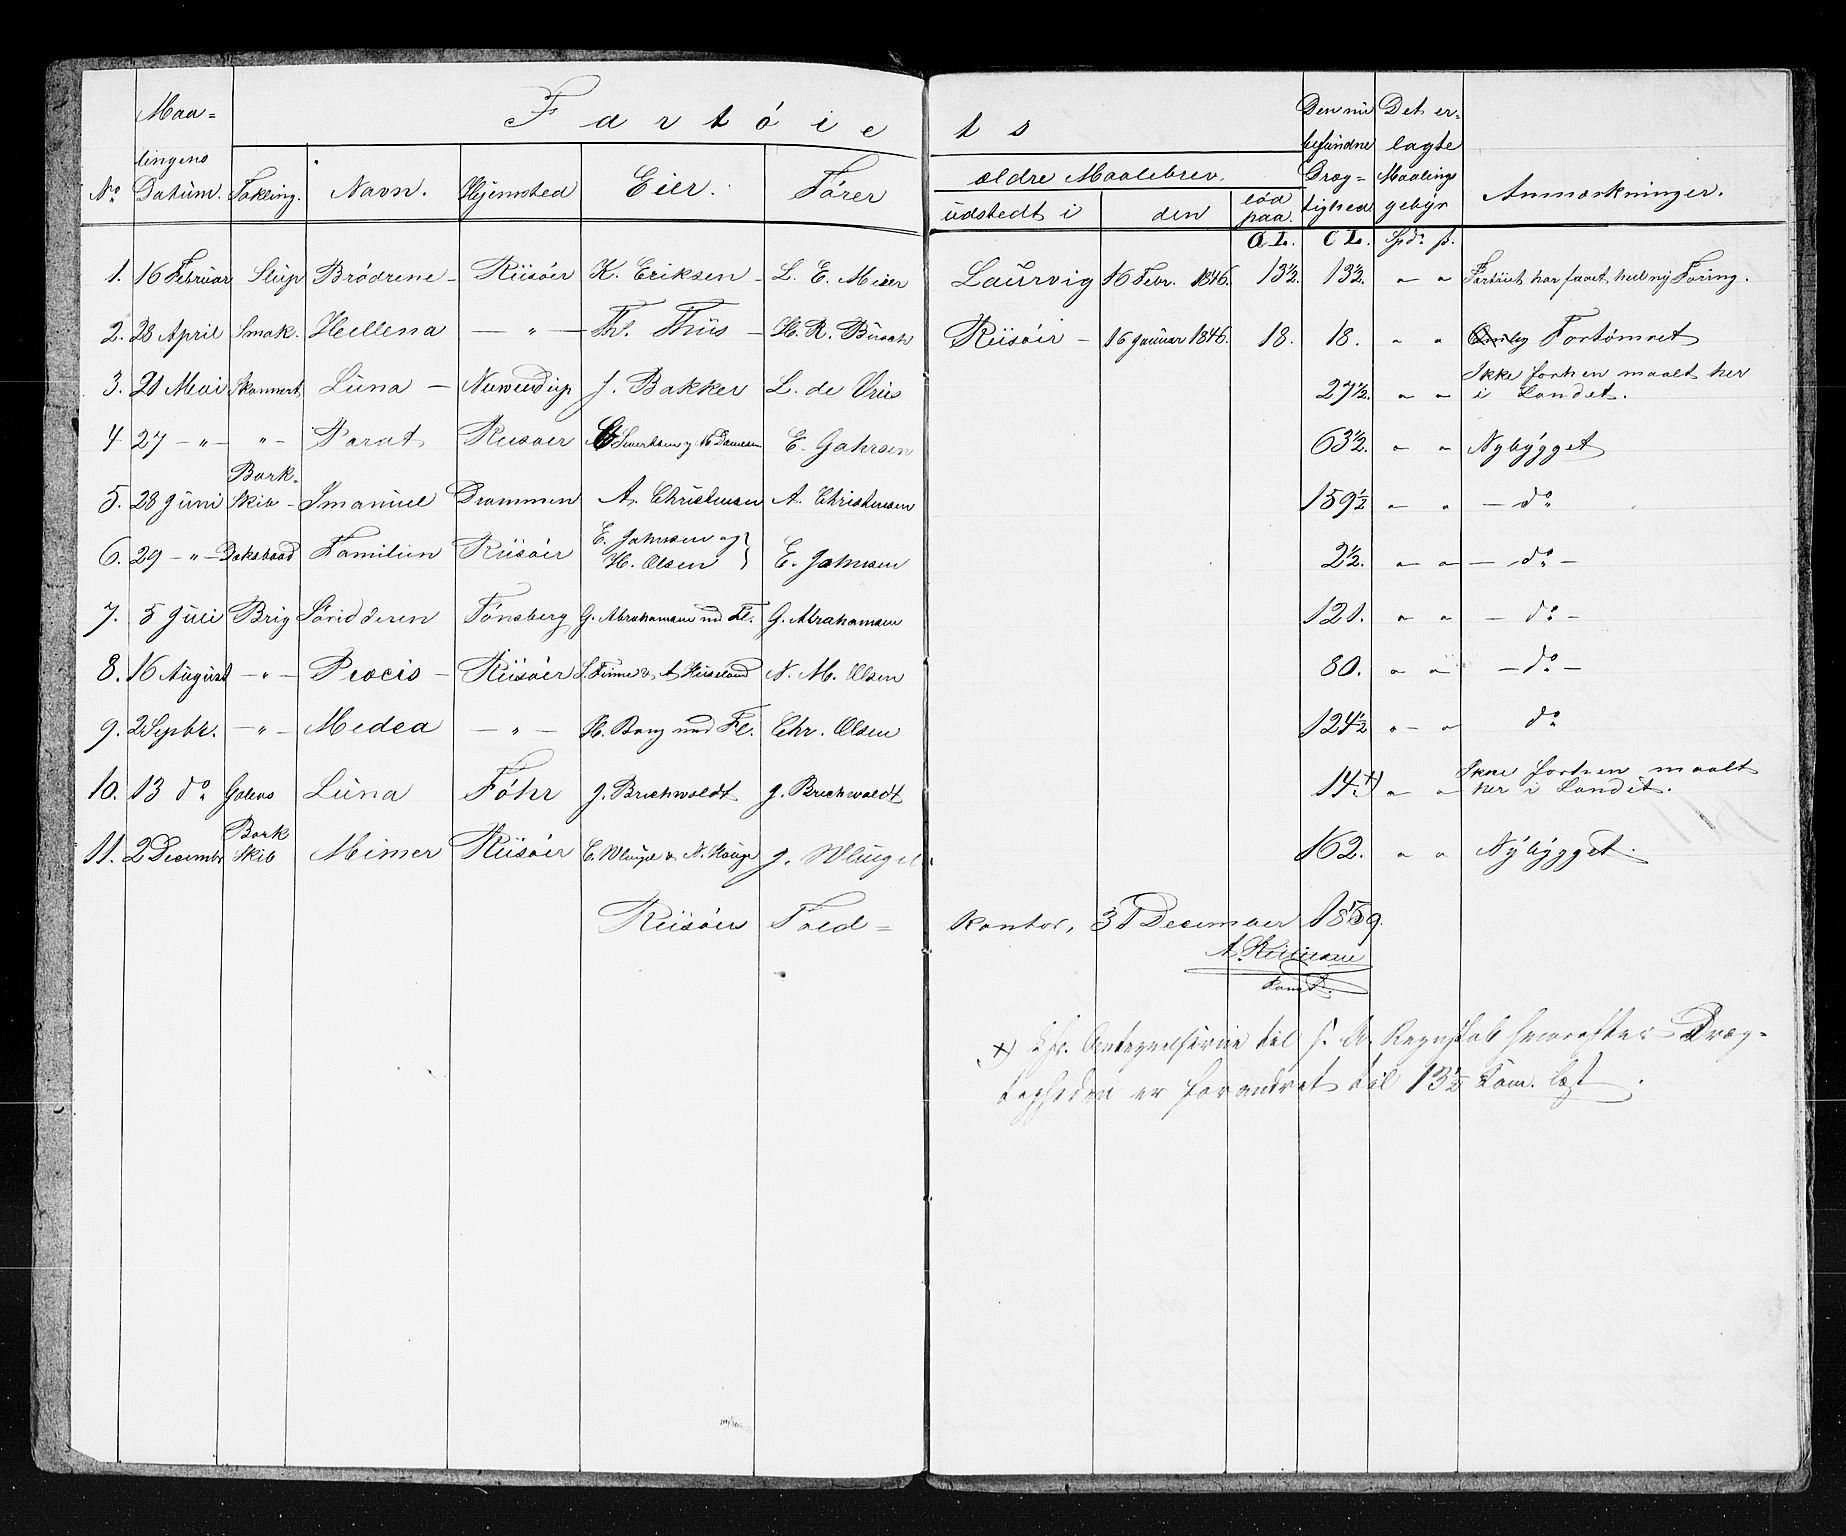 Fartøiets
Maa=
lingens
No Datum. Takling. Navn. Hjemsted Eier. Fører
ældre Maalebrev.
udstedt i den lød paa.
Den nu befundne Dræg=tighed
Det erlagte Maalings gebyr
Anmærkninger.
C L. C L. Spd: ß.
1. 16 Februar Slup Brødrene – Riisøer K. Eriksen – L. E. Meier Laurvig 16 Febr. 1846. 13½. 13½. " " Fartøiet har faaet heel ny Foring.
2. 28 April Smak. Hellena – " – Th. Thiis – H. R. Busch Riisøer – 16 Januar 1846. 18. 18. " " Fortømret
3. 21 Mai Luna – J. Bakker L. de Vries 27½. " " Ikke forhen maalt her
i Landet.
4 27 – " – " – Parat Riisøer E. Gahrsen 63½. " " Nybygget
Bark-
5. 28 Juni Skib – Imanuel Drammen A. Christensen A. Christensen 159½ " " – do
6. 29 – " – Dæksbaad Familien Riisøer E. Jahnsen og
H. Olsen } E. Jahnsen 2½. " " – do –
7. 5 Juli Brig Tønsberg G. Abrahamsen und Fl. G. Abrahamsen 121. " " – do –
8. 16 August – " – Riisøer N. M. Olsen 80. " " – do –
9. 2 Septbr. – " – Medea – " – H. Bang und Fl. Chr. Olsen 124½ " – " do
10. 13 do Galeas Luna Föhr J. Brichwoldt J. Brichwoldt 14. +) " " Ikke forhen maalt
her i Landet.
Bark
11. 2 Decembr Skib Mimer Riisøer 162. " " Nybygget.
Riisøers Told=kontor, 31 December 1859.
Const.
+) Cfr. Antegnelserne til Regnskab hvorefter Dræg=
tigheden er forandret til 13½ Com. læst.